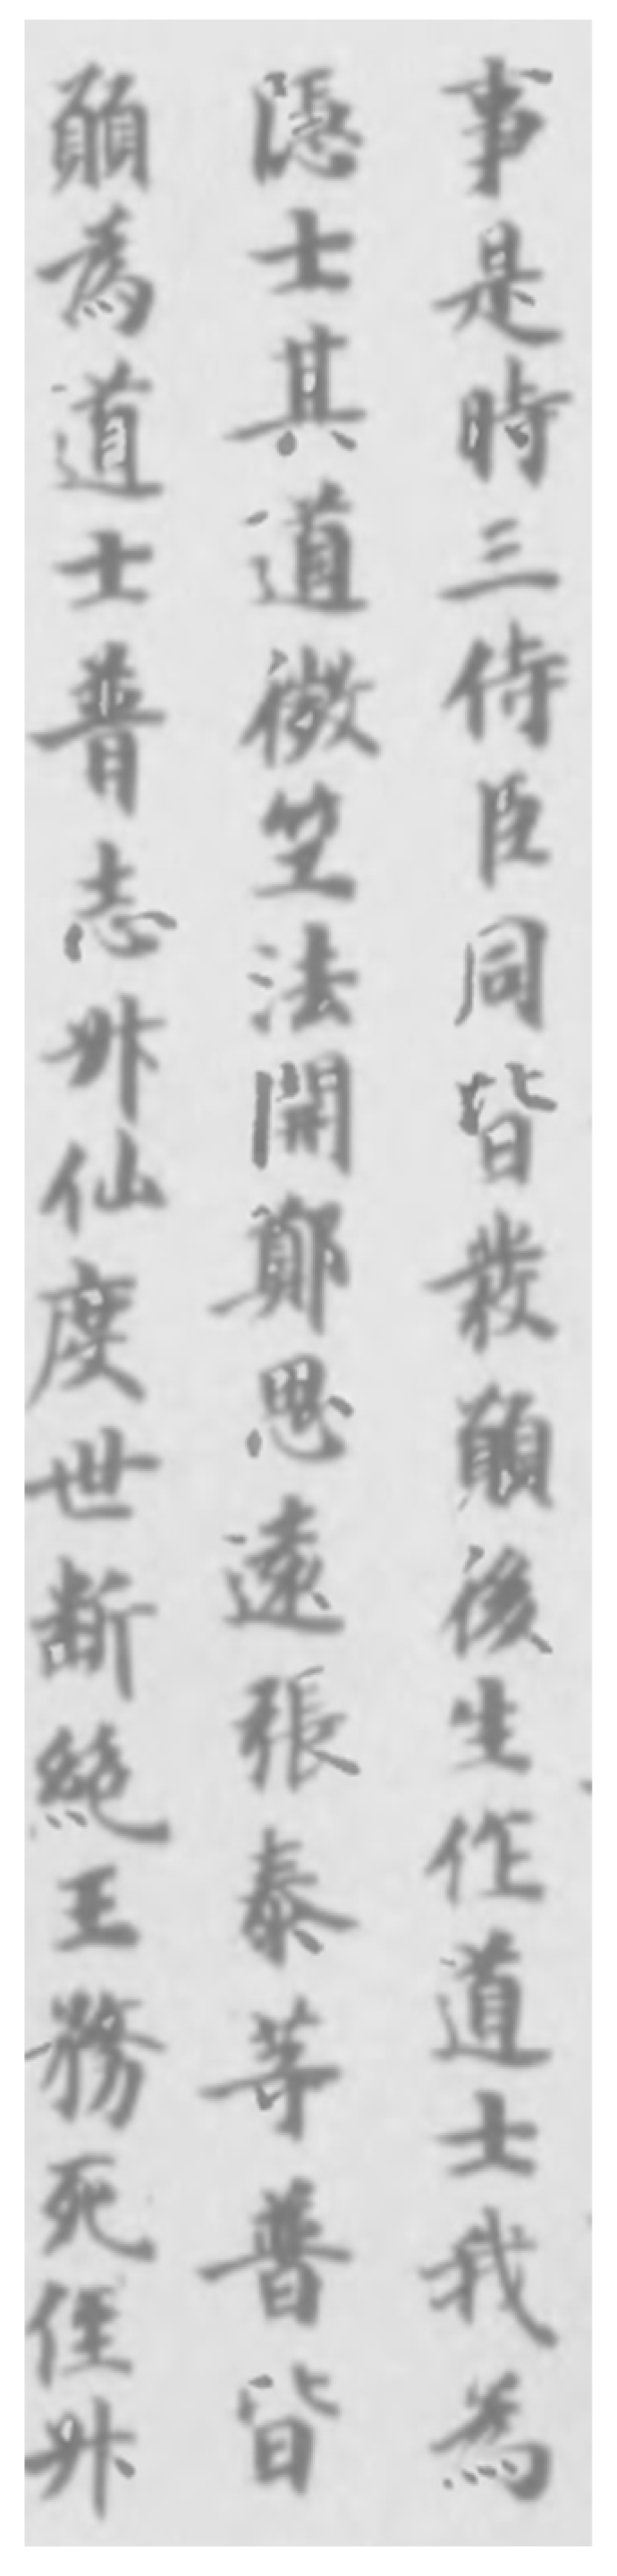 事是時三侍臣同皆發願後生作道士我為
隱士其道微竺法開鄭思遠張泰等普皆
願為道士普志升仙度世斷絕王務死径升